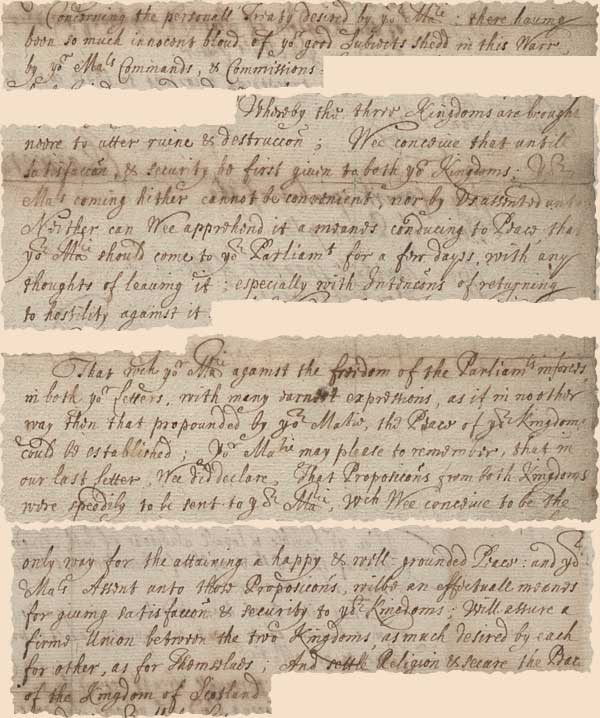 Concerning the personall Treaty desired by yor Matie: there having
been so much innocent bloud of yor good Subiects shedd in this Warr,
by yor Mats Commands, & Commissions
Whereby the three Kingdoms are brought
neere to utter ruine & destruccon; Wee conceive that untill
satisfaccon, & security be first given to both yor Kingdoms; Yor
Mats coming hither cannot be convenient, nor by Us assented unto
Neither can Wee apprehend it a meanes conducing to Peace, that
yor Matie should come to yor Parliamt for a few dayes, with any
thoughts of leaving it; especially with Intencons of returning
to hostility against it.
That wch yor Matie against the freedom of the Parliamts inforces
in both yor Letters, with many earnest expressions, as if in no other
way then that propounded by yor Matie, the Peace of yor Kingdoms
could be established; Yor Matie may please to remember, that in
our last Letter, Wee did declare, That Proposicons from both Kingdoms
were speedily to be sent to yor Matie, wch Wee conceive to be the
only way for the attaining a happy & well-grounded Peace: and yor
Mats Assent unto those Proposicons, wilbe an effectuall meanes
for giving satisfaccon & security to yor Kingdoms; Will assure a
firme Union between the two Kingdoms, as much desired by each
for other, as for Themselves; And settle Religion & secure the Peace
of the Kingdom of Scotland